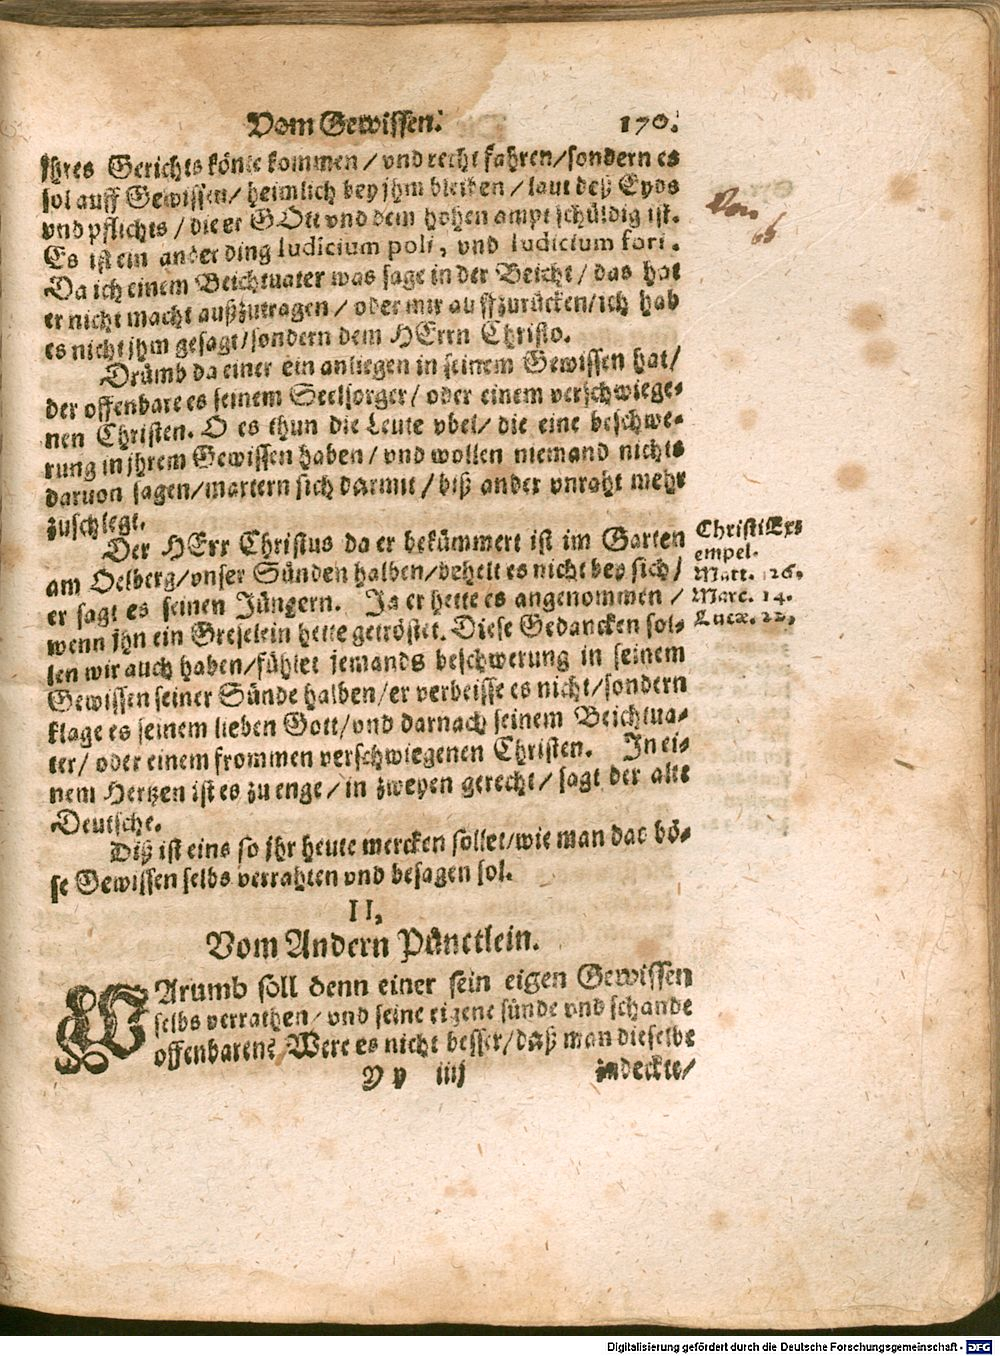 Vom Gewissen. 170.
Ihres Gerichts könte kommen / vnd recht fahren / sondern es
sol auff Gewissen / heimlich bey jhm bleiben / laut deß Eyds
vnd pflichts / die er GOtt vnd dem hohen ampt schüldig ist.
Es ist ein ander ding Iudicium poli, vnd Iudicium fori.
Da ich einem Beichtuater was sage in der Beicht / das hat
er nicht macht außzutragen / oder mir auffzurücken / ich hab
es nicht jhm gesagt / sondern dem HErrn Christo.
Drümb da einer ein anliegen in seinem Gewissen hat /
der offenbare es seinem Seelsorger / oder einem verschwiege-
nen Christen. O es thun die Leute vbel / die eine beschwe-
rung in jhrem Gewissen haben / vnd wollen niemand nichts
daruon sagen / martern sich darmit / biß ander vnraht mehr
zuschlegt.
Der HErr Christus da er bekümmert ist im Garten
am Oelberg / vnser Sünden halben / behelt es nicht bey sich /
er sagt es seinen Jüngern. Ja er hette es angenommen /
wenn jhn ein Greselein hette getröstet. Diese Gedancken sol-
len wir auch haben / fühlet jemands beschwerung in seinem
Gewissen seiner Sünde halben / er verbeisse es nicht / sondern
klage es seinem lieben Gott / vnd darnach seinem Beichtua-
ter / oder einem frommen verschwiegenen Christen. In ei-
nem Hertzen ist es zu enge / in zweyen gerecht / sagt der alte
Deutsche.
Christi Ex-
empel.
Matt. 26.
Marc. 14.
Lucæ. 22.
Diß ist eins so jhr heute mercken sollet / wie man das bö-
se Gewissen selbs verrahten vnd besagen sol.
II.
Vom Andern Pünctlein.
WArumb soll denn einer sein eigen Gewissen
selbs verrathen / vnd seine eigene sünde vnd schande
offenbaren? Were es nicht besser / daß man dieselbe
Yy iiij zudeckte /
Digitalisierung gefördert durch die Deutsche Forschungsgemeinschaft - DFG